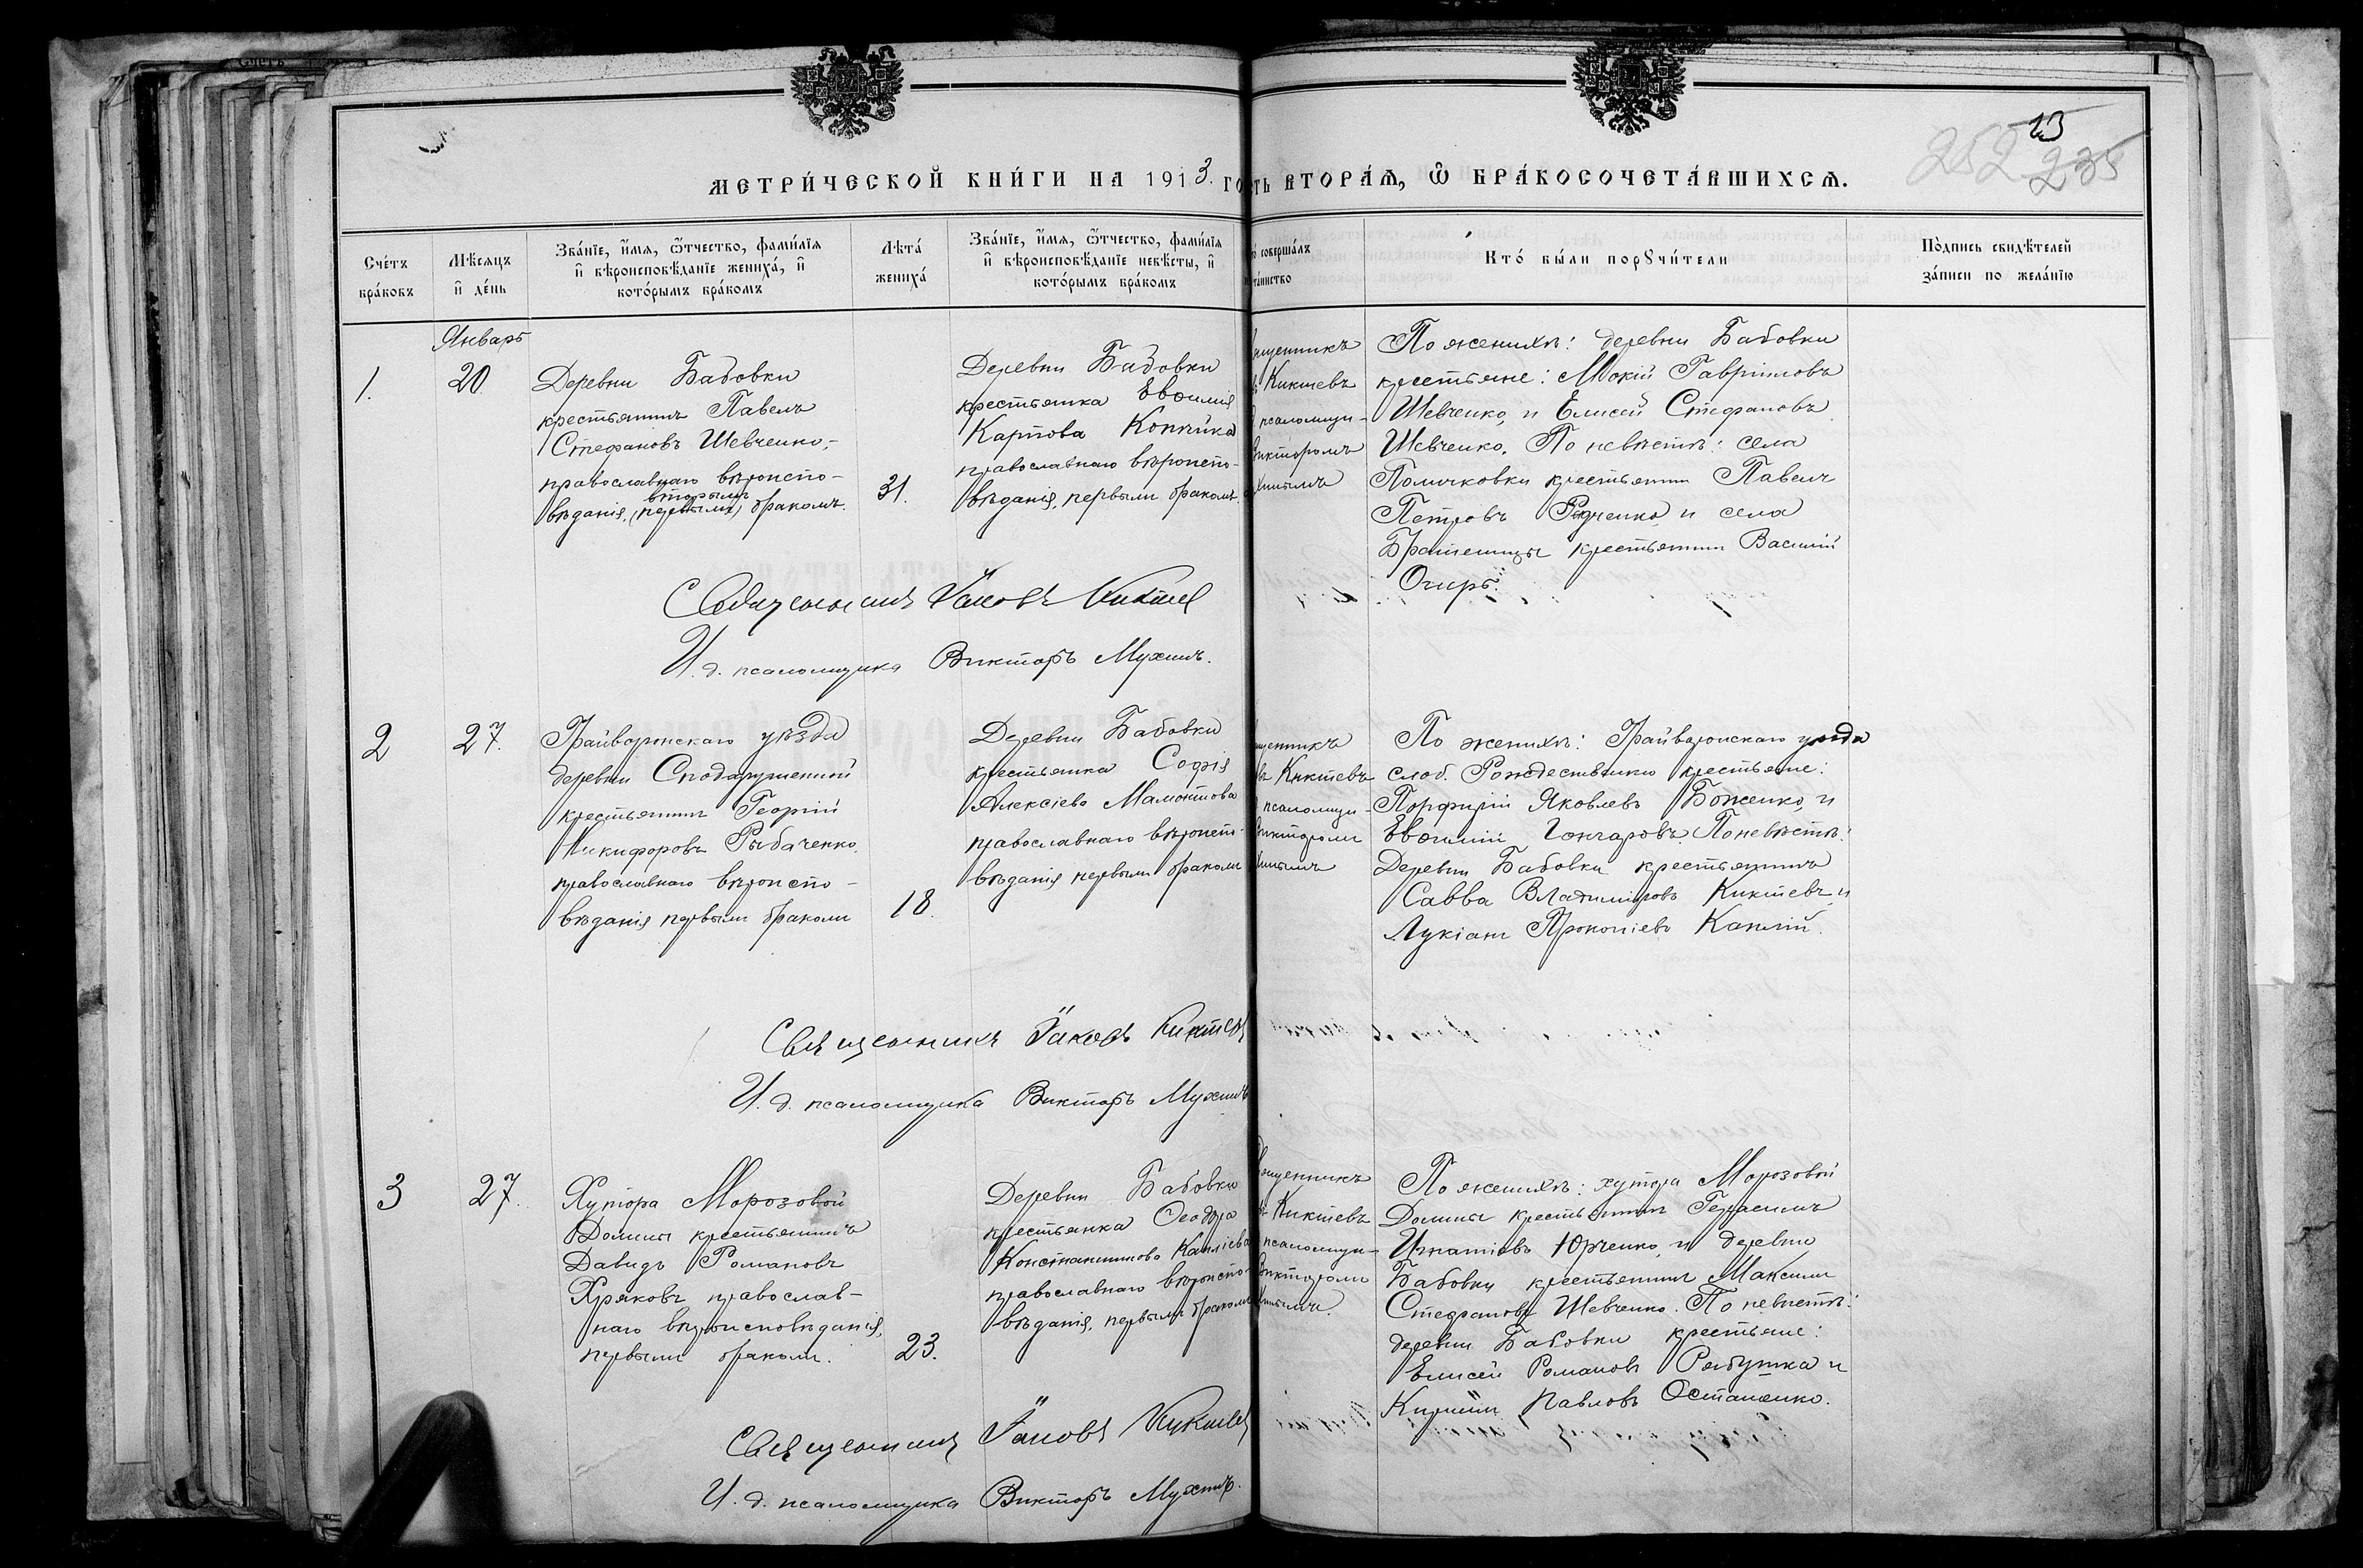 23
252 235
МЕТРИ́ЧЕСКОЙ КНИ́ГИ НА 1913. ГО
ТЬ ВТОРА́Ѧ, Ѡ҆ БРАКОСОЧЕТА́ВШИХСѦ.
Сче́тъ бра́ковъ
Мѣ́сяцъ и҆ де́нь
Зва́нїе, и҆́мѧ, ѻ҆́тчество, фами́лїѧ и҆ вѣроисповѣ́данїе жениха́, и҆ кото́рымъ бра́комъ
Лѣта́ жениха́
Зва́нїе, и҆́мѧ, ѻ҆́тчество, фами́лїѧ и҆ вѣроисповѣ́данїе невѣ́сты, и҆ кото́рымъ бра́комъ
соверша́лъ
таинство
Кто́ бы́ли порꙋчи́тели
По́дпись свидѣ́телей за́писи по жела́нїю
Январь
1.
20
Деревни Бабовки
крестьянинъ Павелъ
Стефановъ Шевченко,
православнаго вѣроиспо-
вторымъ
вѣданія, (первымъ) бракомъ.
31.
Деревни Бабовки
крестьянка Евѳимія
Карпова
православнаго вѣроиспо-
вѣданія, первымъ бракомъ
щенникъ
Киктевъ
псаломщи-
Викторомъ
хинымъ
По женихѣ: деревни Бабовки
крестьяне: Мокій Гавріиловъ
Шевченко, и Елисей Стефановъ
Шевченко. По невѣстѣ: села
Помочковки крестьянинъ Павелъ
Петровъ и села
Братеницы крестьянинъ Василій
Огирь.
Священникъ Іаковъ Киктев
И. д. псаломщика Викторъ Мухинъ.
2
27.
Грайворонскаго уѣзда
деревни
крестьянинъ Георгій
Никифоровъ Рыбаченко,
православнаго вѣроиспо-
вѣданія первымъ бракомъ
18.
Деревни Бабовки
крестьянка Софія
Алексіева Мамонтова
православнаго вѣроиспо-
вѣданія первымъ бракомъ
щенникъ
Киктевъ
псаломщи-
Викторомъ
хинымъ
По женихѣ: Грайворонскаго уѣзда
слоб. Рождественки крестьяне:
Порфирій Яковлевъ Боженко, и
Евѳимій Гончаровъ. По невѣстѣ:
Деревни Бабовки крестьянинъ
Савва Владиміровъ Киктевъ, и
Лукіанъ Прокопіевъ Каплій.
Священникъ Іаковъ Киктевъ
И. д. псаломщика Викторъ Мухинъ
3
27.
Хутора Морозовой
Долины крестьянинъ
Давидъ Романовъ
Хряковъ православ-
наго вѣроисповѣданія,
первымъ бракомъ.
23.
Деревни Бабовки
крестьянка Ѳеодора
Константинова Капліева
православнаго вѣроиспо-
вѣданія, первымъ бракомъ
щенникъ
Киктевъ
псаломщи-
Викторомъ
хинымъ
По женихѣ: хутора Морозовой
Долины крестьянинъ Герасимъ
Игнатіевъ Юрченко, и деревни
Бабовки крестьянинъ Максимъ
Стефановъ Шевченко. По невѣстѣ:
деревни Бабовки крестьяне:
Елисей Романовъ Рябушка и
Кириллъ Павловъ Остапенко.
Священникъ Іаковъ Киктев
И. д. псаломщика Викторъ Мухинъ.